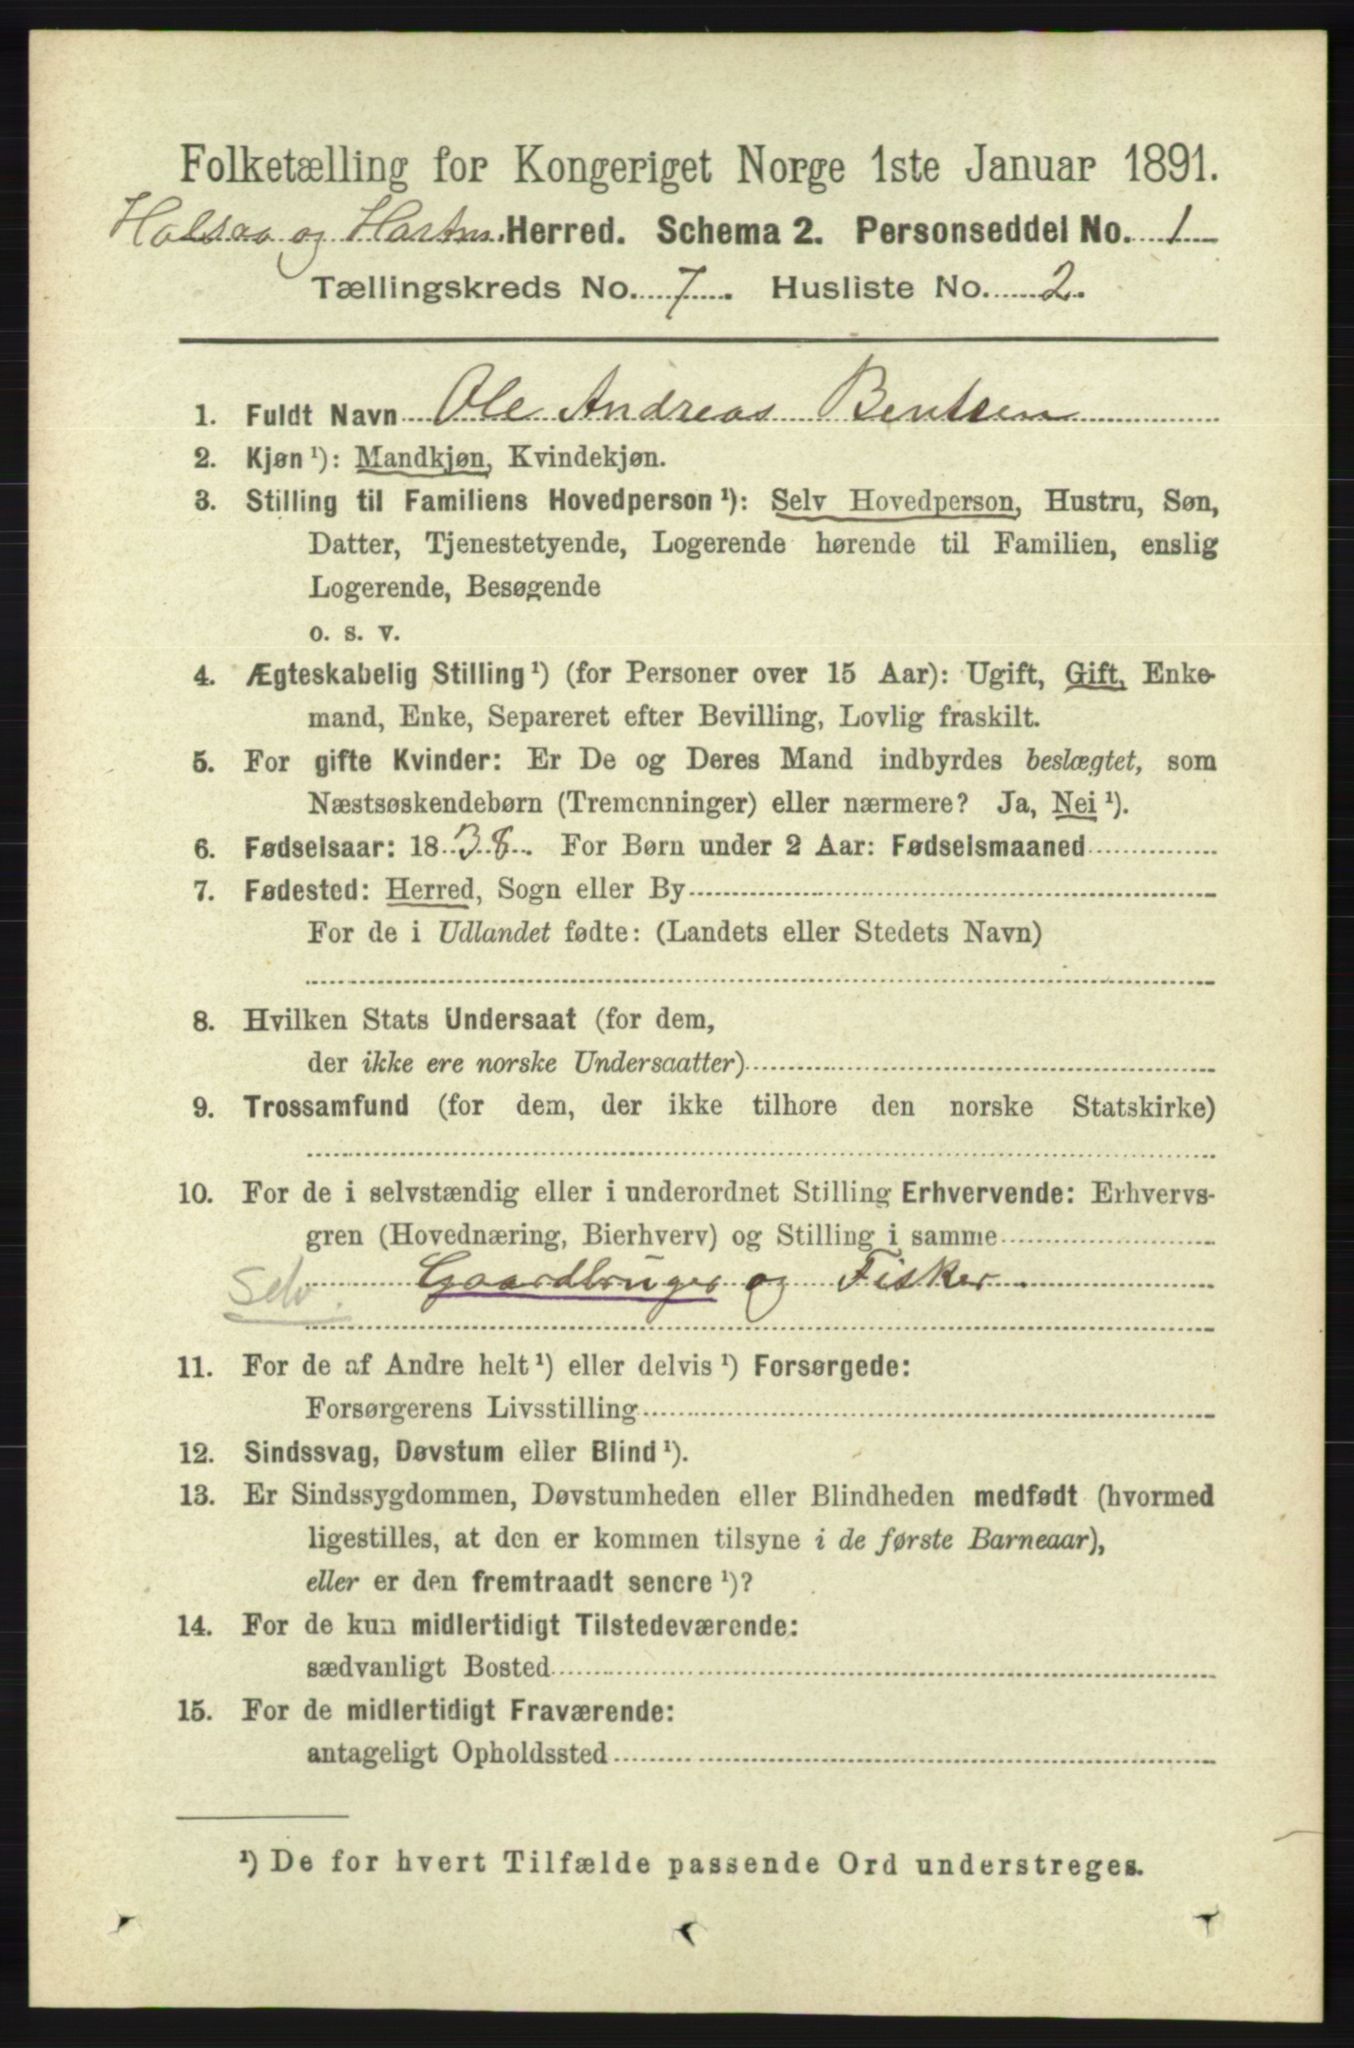 Folketælling for Kongeriget Norge 1ste Januar 1891.
Halsaa og Hartm. Herred. Schema 2. Personseddel No. 1
Tællingskreds No. 7. Husliste No. 2.
1. Fuldt Navn Ole Andreas Bentsen
2. Kjøn ¹): Mandkjøn, Kvindekjøn.
3. Stilling til Familiens Hovedperson ¹): Selv Hovedperson, Hustru, Søn,
Datter, Tjenestetyende, Logerende hørende til Familien, enslig
Logerende, Besøgende
o. s. v.
4. Ægteskabelig Stilling ¹) (for Personer over 15 Aar): Ugift, Gift, Enke-
mand, Enke, Separeret efter Bevilling, Lovlig fraskilt.
5. For gifte Kvinder: Er De og Deres Mand indbyrdes beslægtet, som
Næstsøskendebørn (Tremenninger) eller nærmere? Ja, Nei ¹).
6. Fødselsaar: 1838. For Børn under 2 Aar: Fødselsmaaned
7. Fødested: Herred, Sogn eller By
For de i Udlandet fødte: (Landets eller Stedets Navn)
8. Hvilken Stats Undersaat (for dem,
der ikke ere norske Undersaatter)
9. Trossamfund (for dem, der ikke tilhøre den norske Statskirke)
10. For de i selvstændig eller i underordnet Stilling Erhvervende: Erhvervs-
gren (Hovednæring, Bierhverv) og Stilling i samme
Selv. Gaardbruger og Fisker.
11. For de af Andre helt ¹) eller delvis ¹) Forsørgede:
Forsørgerens Livsstilling
12. Sindssvag, Døvstum eller Blind ¹).
13. Er Sindssygdommen, Døvstumheden eller Blindheden medfødt (hvormed
ligestilles, at den er kommen tilsyne i de første Barneaar),
eller er den fremtraadt senere ¹)?
14. For de kun midlertidigt Tilstedeværende:
sædvanligt Bosted
15. For de midlertidigt Fraværende:
antageligt Opholdssted
¹) De for hvert Tilfælde passende Ord understreges.